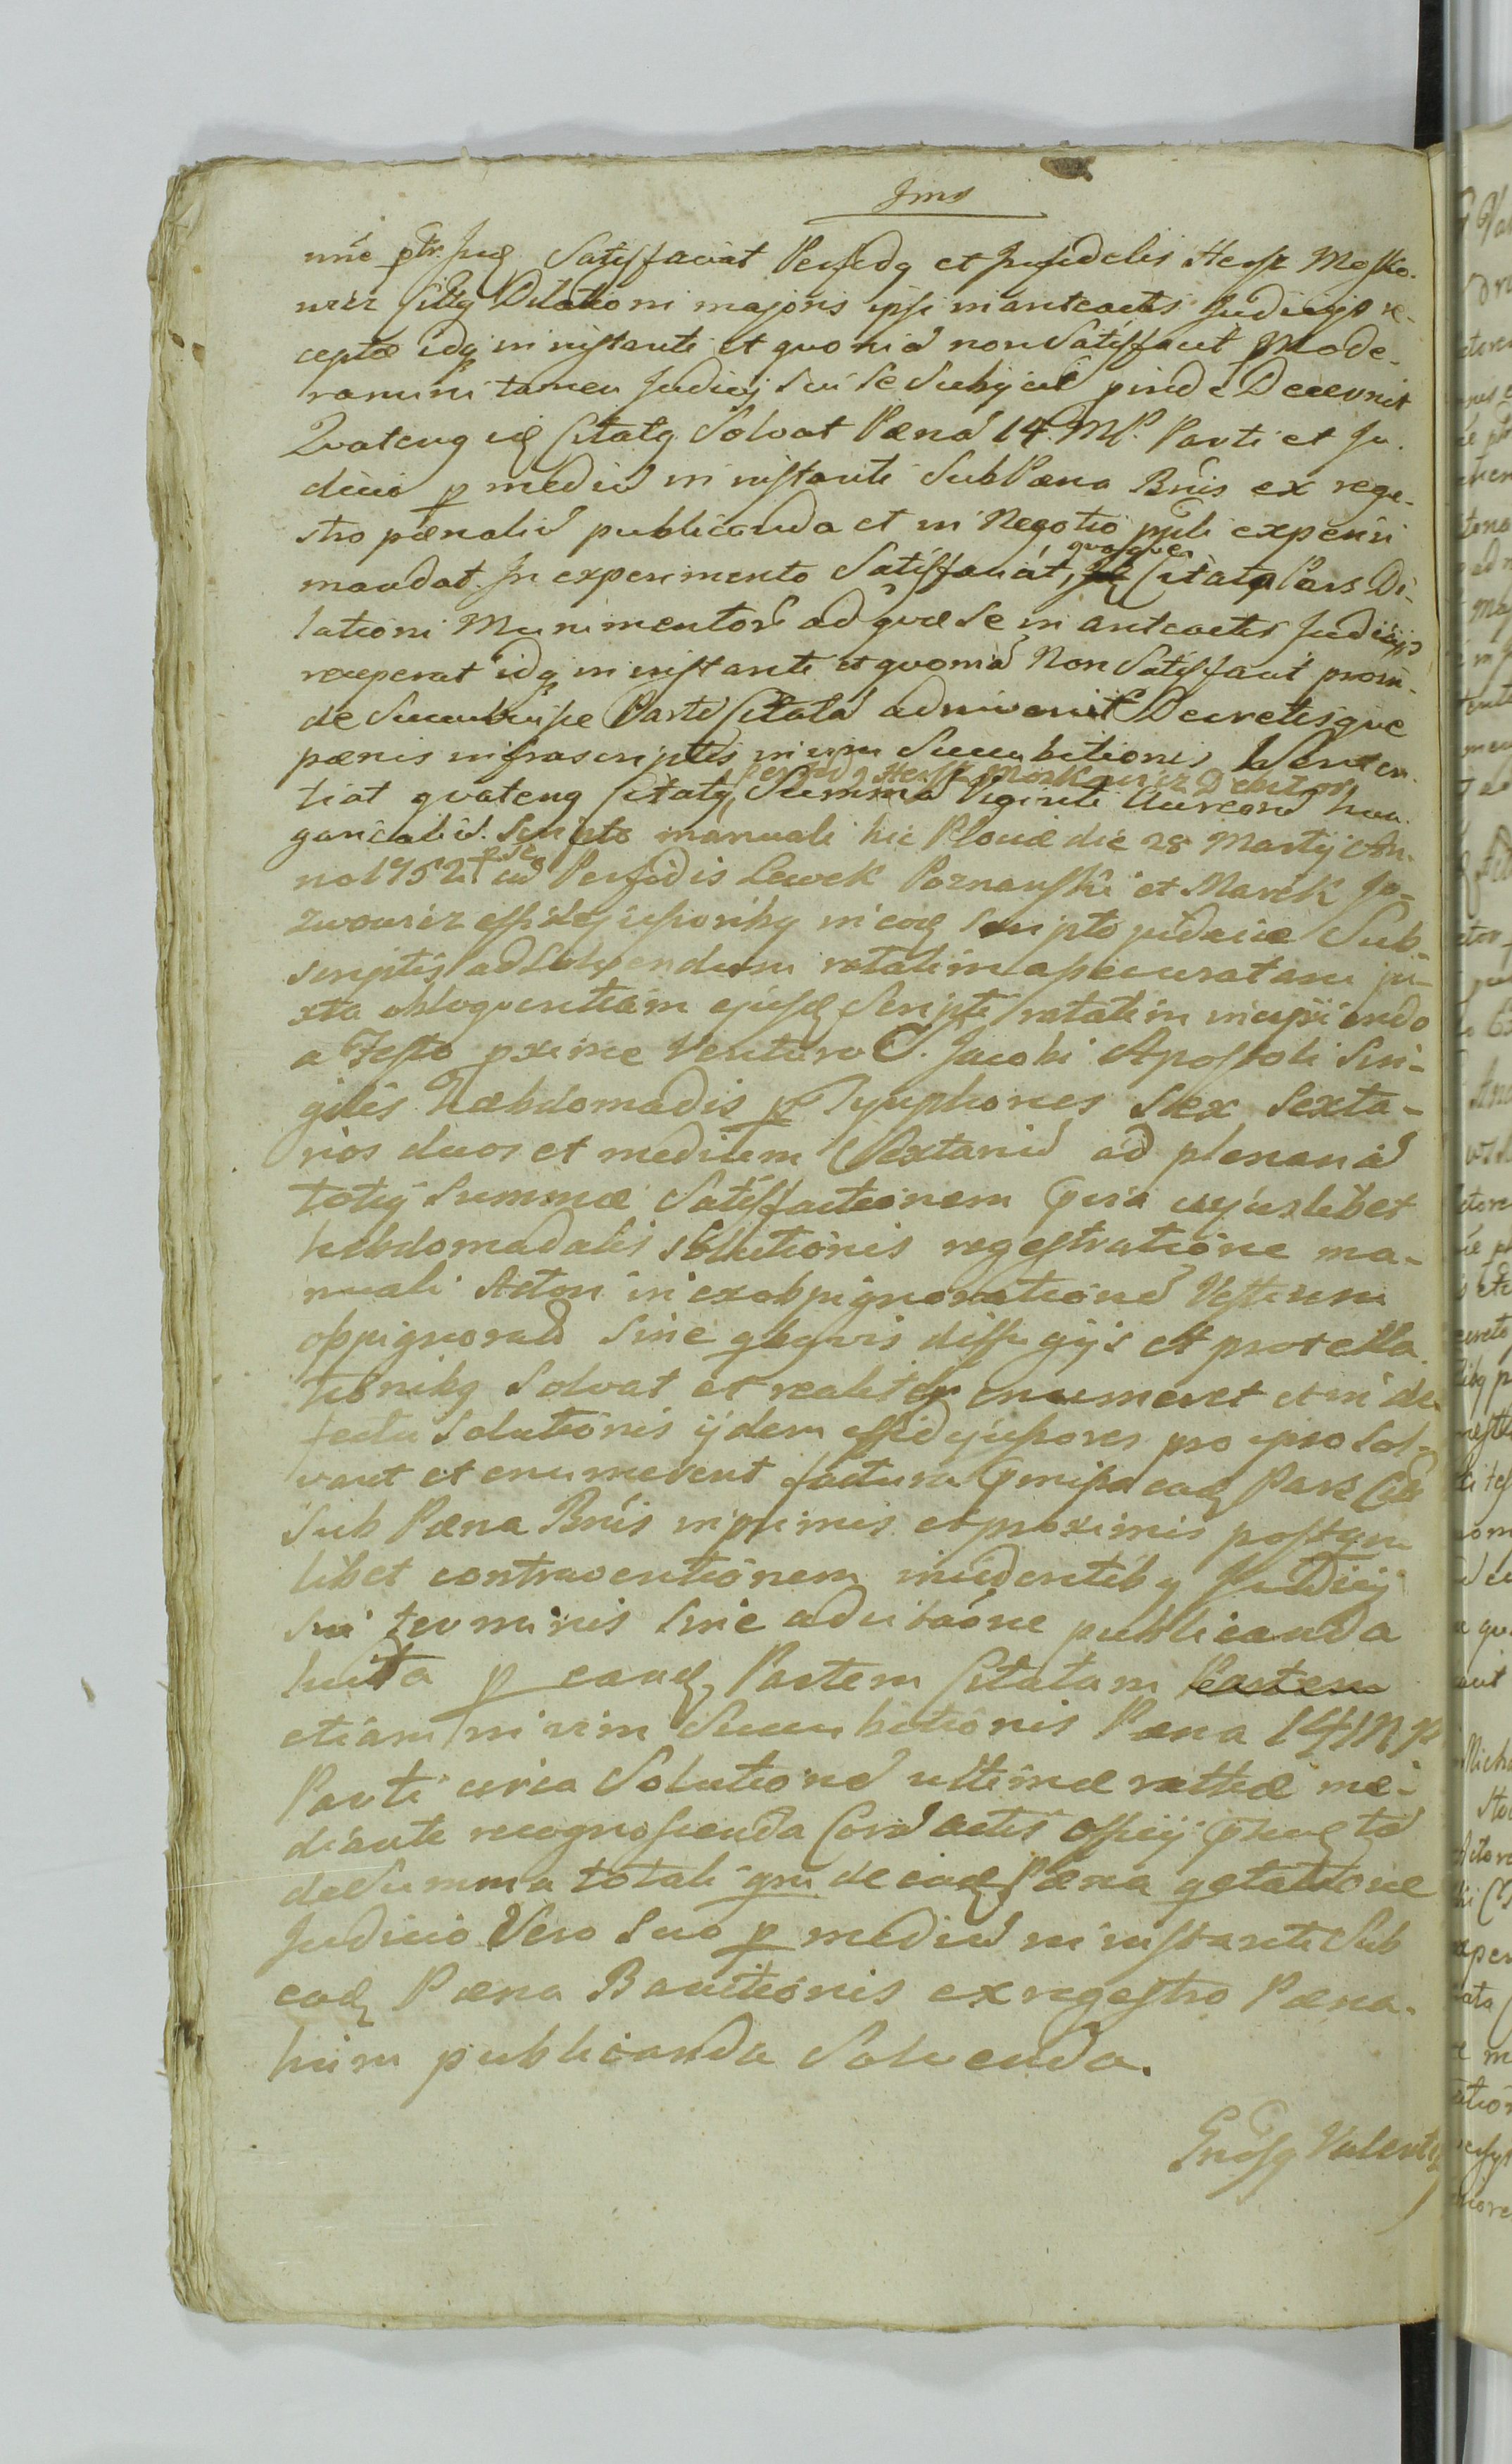 Jmo
nnē ptr. Jud Satisfaciat Perfidq et Jnfidelis Hersz Mosko-
wicz Cittq Dilationi majoris ipsi in anteactis Judicijs re-
ceptæ idq in instanti et quoniā non Satisfacit Mode-
ramini tamen Judicij sui se Subijcit pinde Decernit
Quatenq id Citatq Solvat Pænā 14 MP. Parti et Ju-
dicio p mediū in instanti Sub Pæna Bnis ex rege-
stro pænaliū publicanda et in Negotio ppli experiri
mandat. Jn experimento Satisfaciat, quoque Citata Pars Di-
lationi Munimentorū ad quæ se in anteactis Judicijs
receperat idq in instanti et quoniā Non Satisfacit proin-
de Succubuisse Partē Citatā adinvenit Decretisque
pænis infrascriptis in vim Succubitionis
tiat quatenq Citatq Perfidq Hersz Moskowicz Debitor Summā Viginti Aureorū hun-
garicaliū Scripto manuali hic Plonæ die 28 Martij An-
no 1752 p se cū Perfidis Lewek Poznanski et Marek Jo-
zwowicz effidejussoribq in eod Scripto judaice Sub
scriptis ad Solvendum ratatim assecuratam ju-
xta obloquentiam ejusd Scripti ratatim incipiendo
a Festo pxime Venturo S. Jacobi Apostoli Sin-
gulis hæbdomadis p Tynphones Sex Sexta-
rios duos et medium Sextariū ad plenariā
totiq Summæ Satisfactionem circa cujuslibet
hebdomadalis solutionis regestratione ma-
nuali Actori in exobpignorationē Vestium
oppignoratā Sine qbqvis diffugijs et protella
tionibq Solvat et realitr enumeret et in de-
fectu Solutionis ijdem effidejussores pro ipso Sol-
vant et enumerent ead Pars Citt
Sub Pæna Bnis in primis et proximis post quam
libet contraventionem incidentibq Judicij
sui terminis Sine aditaōne publicanda
luita p eand Partem Citatam Partem
etiam in vim Succubitionis Pæna 14 MP
Parti circa Solutionē ultimæ rattæ me-
diante recognoscenda Corā actis officij
de Summa totali de ead Pæna qetatione
Judicio Vero Suo p mediū in instanti Sub
ead Pæna Banitionis ex regestro Pæna-
lium publicanda Solvenda.
Gnosq Valentq